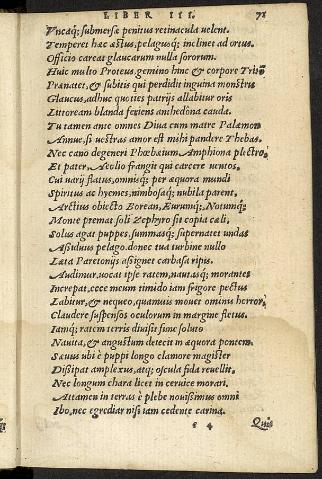 LIBER III. 71
Vncaq; submersæ penitus retinacula uelent.
Temperet hæc æstus, pelagusq; inclinet ad ortus.
Officio careat glaucarum nulla sororum.
Huic multo Proteus, gemino hinc & corpore Tritō
Prænatet, & subitis qui perdidit inguina monstris
Glaucus, adhuc quoties patrijs allabitur oris
Littoream blanda feriens anthedona cauda.
Tu tamen ante omnes Diua cum matre Palæmon
Annue, si uestras amor est mihi pandere Thebas.
Nec cano degeneri Phœbæum Amphiona plectro.
Et pater, Aeolio frangit qui carcere uentos,
Cui uarij flatus, omnisq; per æquora mundi
Spiritus ac hyemes, nimbosaq; nubila parent,
Arctius obiecto Borean, Eurumq;, Notumq;
Monte premat soli Zephyro sit copia cæli,
Solus agat puppes, summasq; supernatet undas
Assiduus pelago. donec tua turbine nullo
Læta Parætonijs assignet carbasa ripis.
Audimur, uocat ipse ratem, nautasq; morantes
Increpat, ecce meum timido iam frigore pectus
Labitur, & nequeo, quamuis mouet ominus horror,
Claudere suspensos oculorum in margine fletus.
Iamq; ratem terris diuisit fune soluto
Nauita, & angustum deiecit in æquora pontem.
Sæuus ubi è puppi longo clamore magister
Dissipat amplexus, atq; oscula fida reuellit.
Nec longum chara licet in ceruice morari.
Attamen in terras è plebe nouissimus omni
Ibo, nec egrediar nisi iam cedente carina.
4 Quis